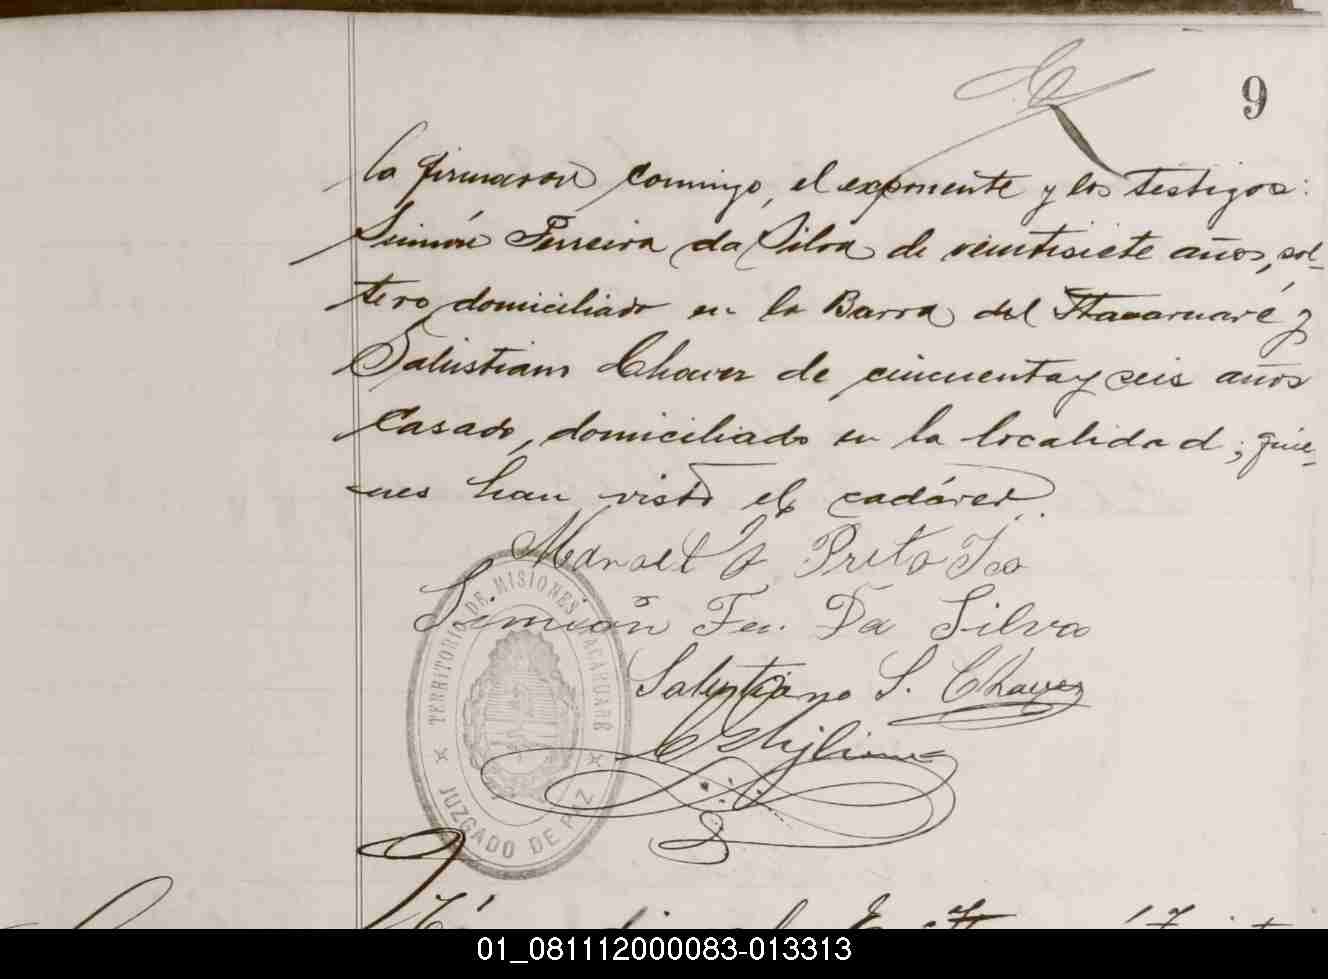 9
la firmaron conmigo, el exponente y los testigos:
Simón Ferreira da Silva de veintisiete años, sol-
tero domiciliado en la Barra del Itacaruaré y
Salustiano Chavez de cincuenta y seis años
Casado, domiciliado en la localidad; quie-
nes han visto el cadáver.
Manoel Prito
Simión Fer. Da Silva
Salustiano S. Chavez
TERRITORIO DE MISIONES ITACARUARÉ
JUZGADO DE PAZ
01_081112000083-013313